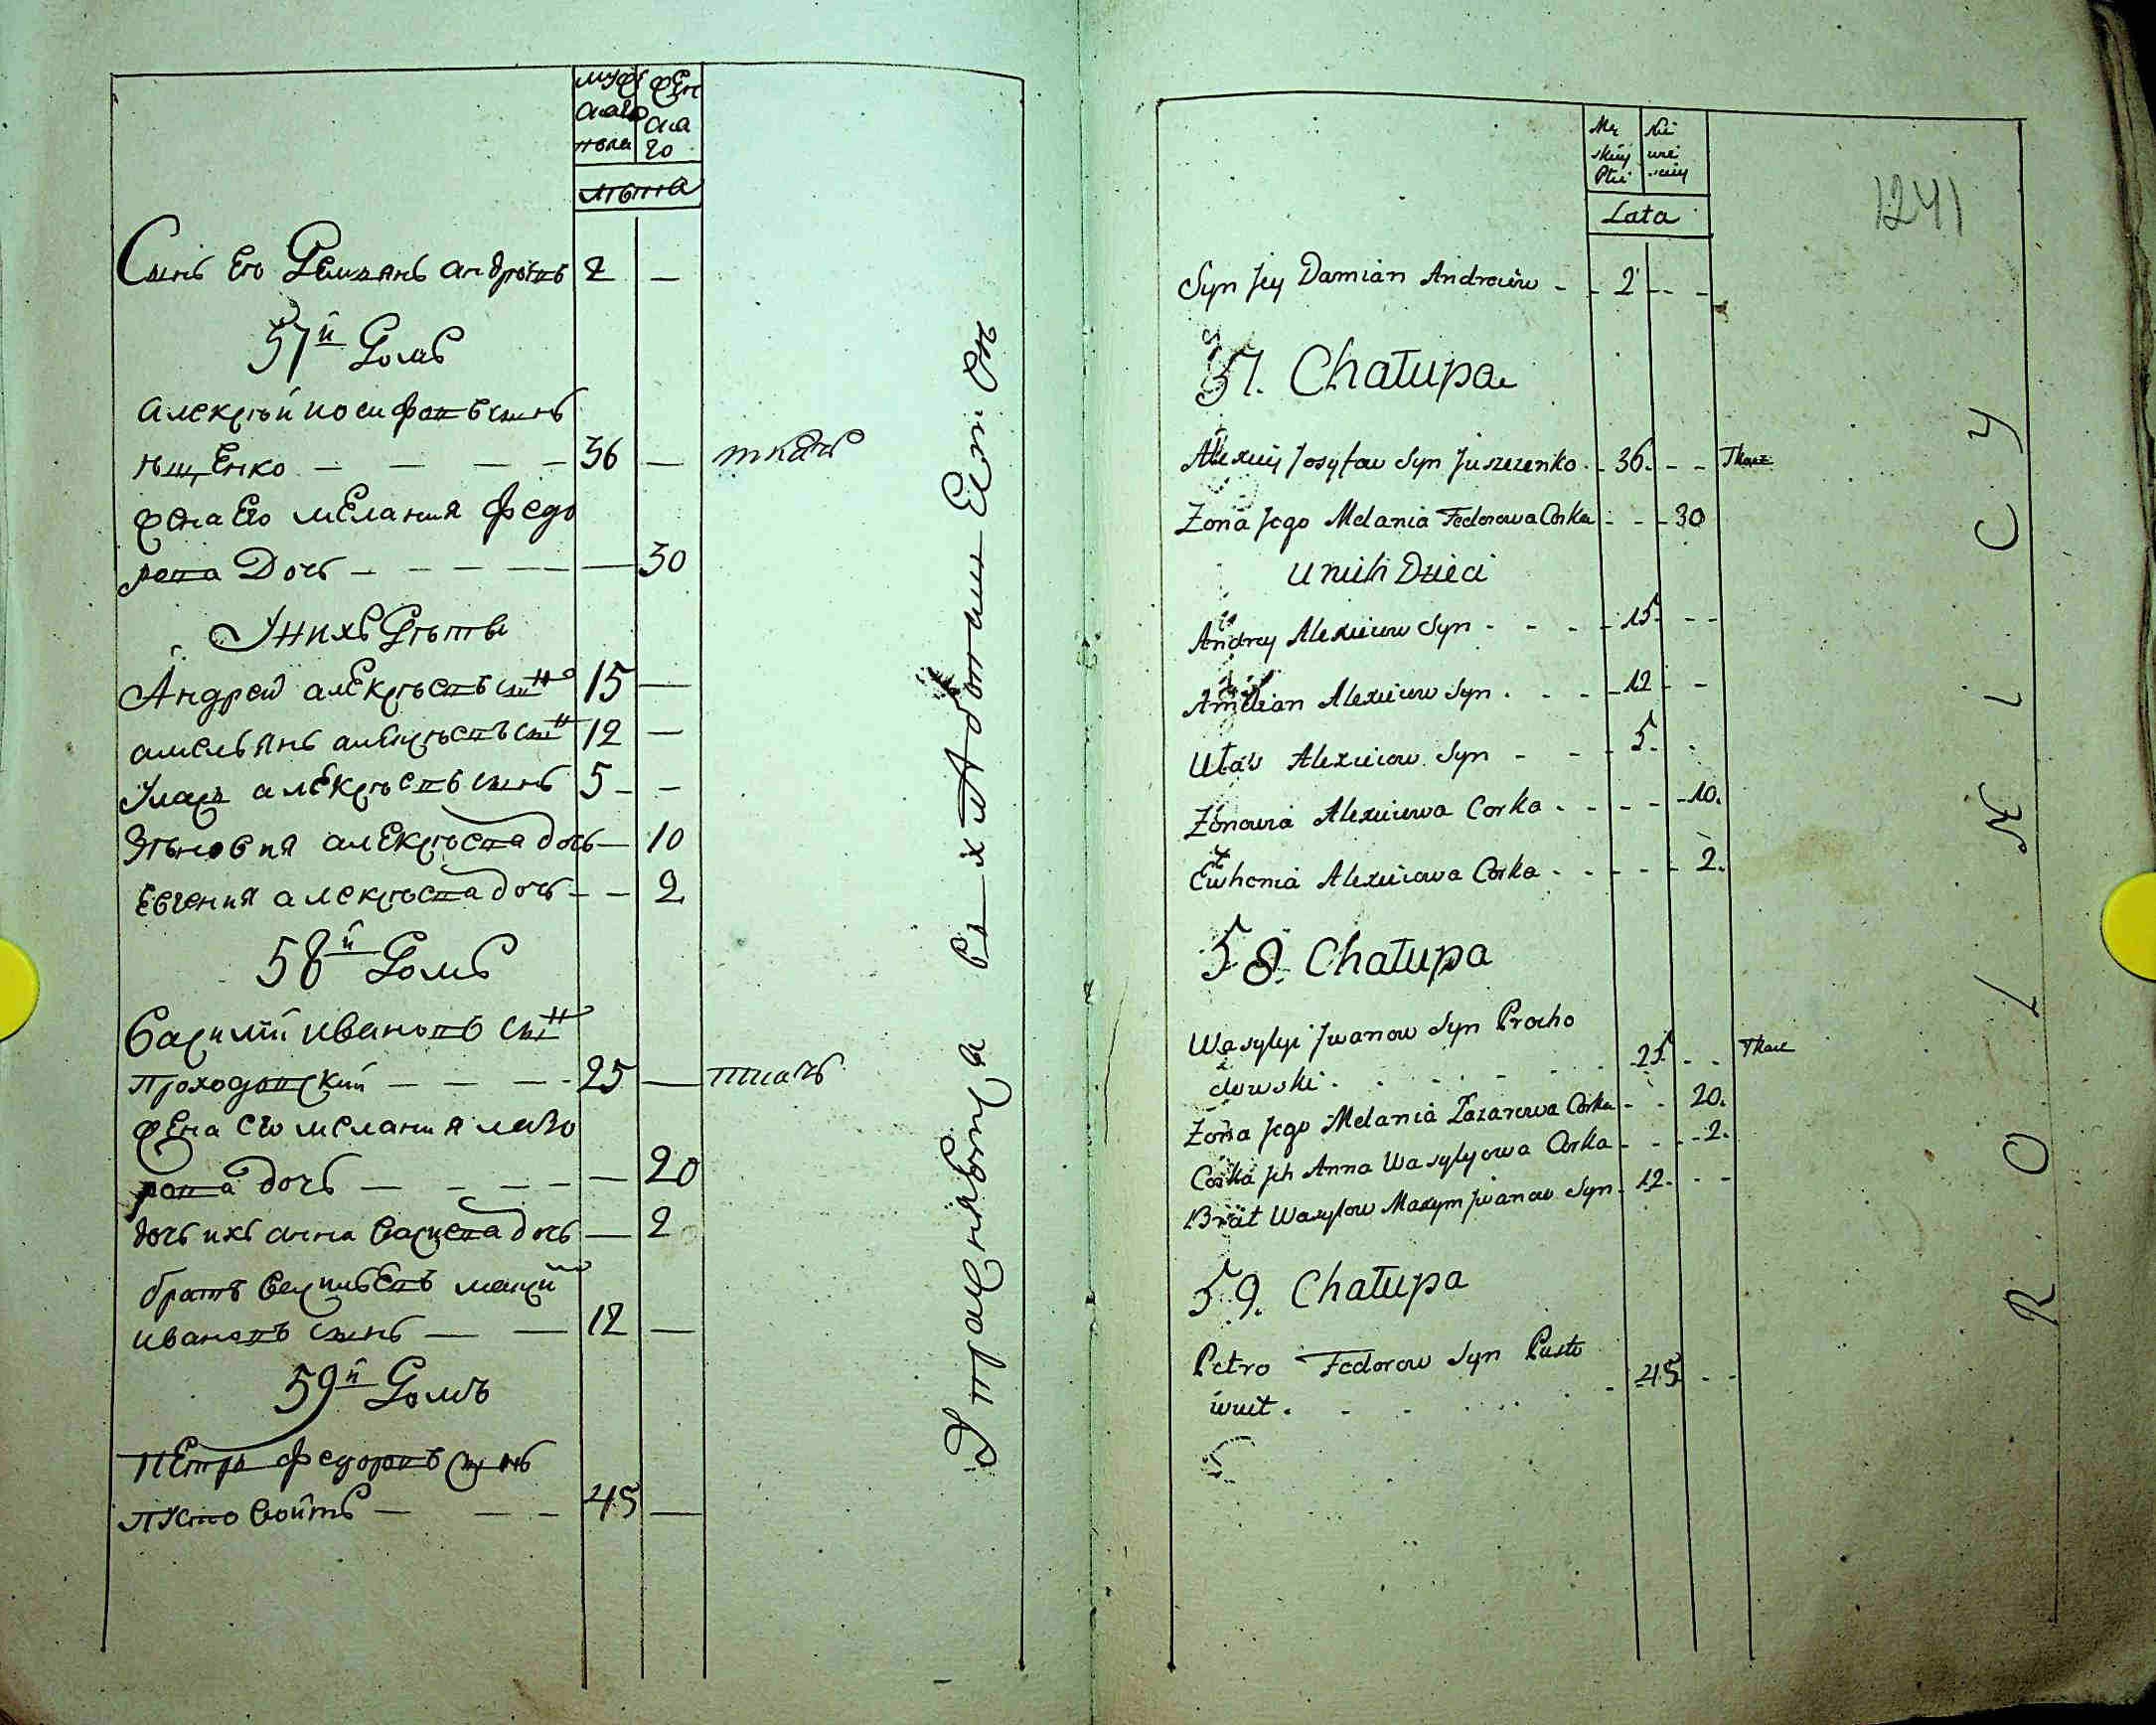 мужескаго пола
женскаго
лѣта
Сынъ его Демьянъ Андрѣевъ 2 —
57й Домъ
Алексѣй Иосифовъ сынъ
Ющенко — — — — 36 — ткачь
Жена Его Мелания Федо
рова Дочь — — — — — 30
У нихъ Дѣти
Андрей Алексѣевъ сынъ 15 —
Амельянъ Алексѣевъ сынъ 12 —
Уласъ Алексѣевъ сынъ 5 - -
Зѣновия Алексѣева дочь — 10
Евгения Алексѣева дочь - — 2
58й Домъ
Василий Ивановъ сынъ
Проходовский — — — - 25 — ткачь
Жена его Мелания Лаза
рова дочь — — - — — — 20
дочь ихъ Анна Васильева дочь — 2
братъ Васильевъ
Ивановъ сынъ — — 12 —
59й Домъ
Петръ Федоровъ сынъ
Пустовойтъ — — - 45 —
Упражняются въ хлебопашестве
Męskiey Płci
Żeńskiey
Lata
1241
Syn Jey Damian Andreiew - - 2 - - -
57. Chałupa
Alexiey Josyfow Syn Juszczenko. - 36. - - Tkacz
Zona Jego Melania Fedorowa Corka - - - 30
U nich Dzieci
Andrey Alexieiow Syn - - - - 15. - -
Amelian Alexieiow Syn . - - - 12 - -
Ułas Alexieiow Syn - - - 5. .
Zonowia Alexieiewa Corka - - - - - 10.
Ewhenia Alexieiowa Corka . - - - - 2.
58. Chałupa
Wasylyi Jwanow Syn Procho
dowski . . . - - . . 25. - . Tkacz
Zona Jego Melania Łazarowa Corka - - 20.
Corka Jch Anna Wasylyowa Corka - - - - 2.
Brat Wasylow Maxym Jwanow Syn - 12. - -
59. Chałupa
Petro Fedorow Syn Pusto
woit . - - . . . . - 45 . -
ROLNICY